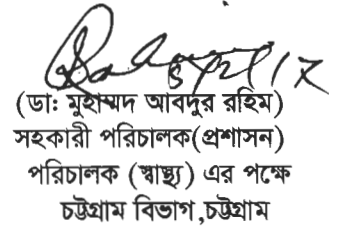 (ডাঃ মুহাম্মদ আবদুর রহিম)
সহকারী পরিচালক(প্রশাসন)
পরিচালক (স্বাস্থ্য) এর পক্ষে
চট্টগ্রাম বিভাগ,চট্টগ্রাম